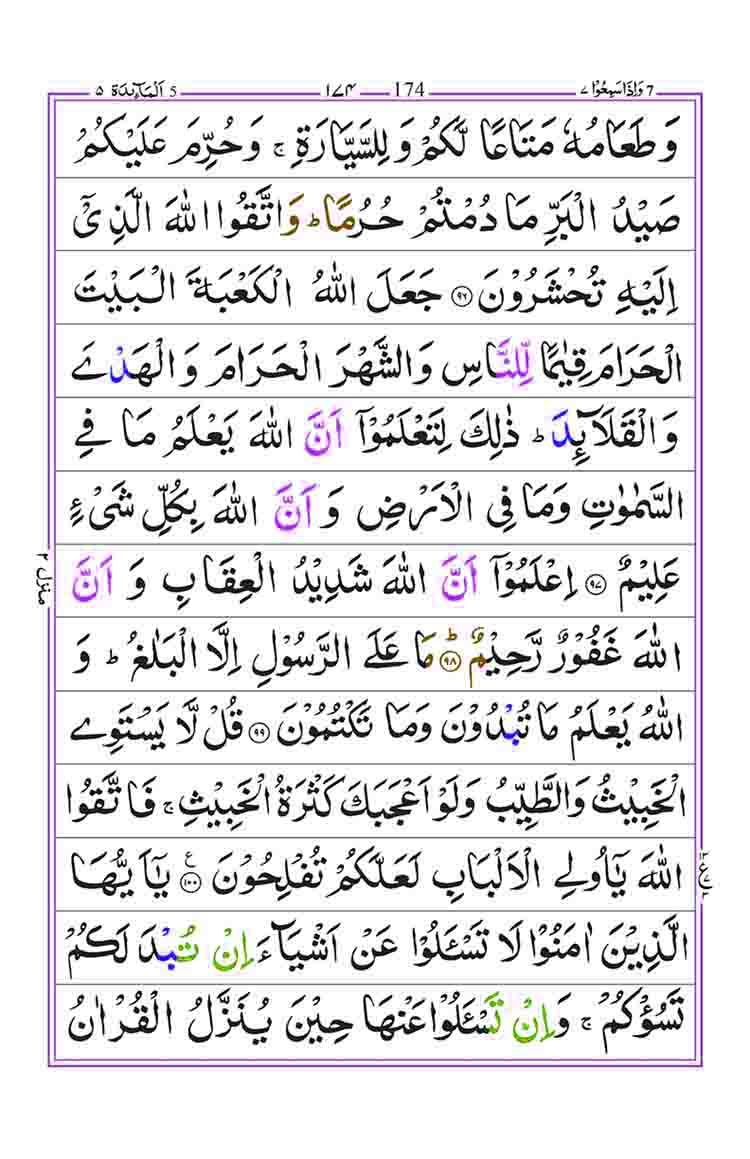 وَاِذَاسَمِعُوْا ٧ 7 174 ١٧٤ 5 اَلْمَآىِٕدَة ٥
وَطَعَامُهٗ مَتَاعًا لَّكُمْ وَلِلسَّيَّارَةِ ۚ وَحُرِّمَ عَلَيْكُمْ
صَيْدُ الْبَرِّ مَا دُمْتُمْ حُرُمًا ؕ وَاتَّقُوا اللّٰهَ الَّذِىْۤ
اِلَيْهِ تُحْشَرُوْنَ ﴿٩٦﴾ جَعَلَ اللّٰهُ الْكَعْبَةَ الْبَيْتَ
الْحَرَامَ قِيٰمًا لِّلنَّاسِ وَالشَّهْرَ الْحَرَامَ وَالْهَدْىَ
وَالْقَلَآئِدَ ؕ ذٰلِكَ لِتَعْلَمُوْۤا اَنَّ اللّٰهَ يَعْلَمُ مَا فِى
السَّمٰوٰتِ وَمَا فِى الْاَرْضِ وَاَنَّ اللّٰهَ بِكُلِّ شَىْءٍ
عَلِيْمٌ ﴿٩٧﴾ اِعْلَمُوْۤا اَنَّ اللّٰهَ شَدِيْدُ الْعِقَابِ وَ اَنَّ
اللّٰهَ غَفُوْرٌ رَّحِيْمٌ ؕ ﴿٩٨﴾ مَا عَلَى الرَّسُوْلِ اِلَّا الْبَلٰغُ ؕ وَ
اللّٰهُ يَعْلَمُ مَا تُبْدُوْنَ وَمَا تَكْتُمُوْنَ ﴿٩٩﴾ قُلْ لَّا يَسْتَوِى
الْخَبِيْثُ وَالطَّيِّبُ وَلَوْ اَعْجَبَكَ كَثْرَةُ الْخَبِيْثِ ۚ فَاتَّقُوا
اللّٰهَ يٰۤاُولِى الْاَلْبَابِ لَعَلَّكُمْ تُفْلِحُوْنَ ﴿١٠٠﴾ ع يٰۤاَيُّهَا
الَّذِيْنَ اٰمَنُوْا لَا تَسْـَٔلُوْا عَنْ اَشْيَآءَ اِنْ تُبْدَ لَكُمْ
تَسُؤْكُمْ ۚ وَاِنْ تَسْـَٔلُوْا عَنْهَا حِيْنَ يُنَزَّلُ الْقُرْاٰنُ
منزل ٢